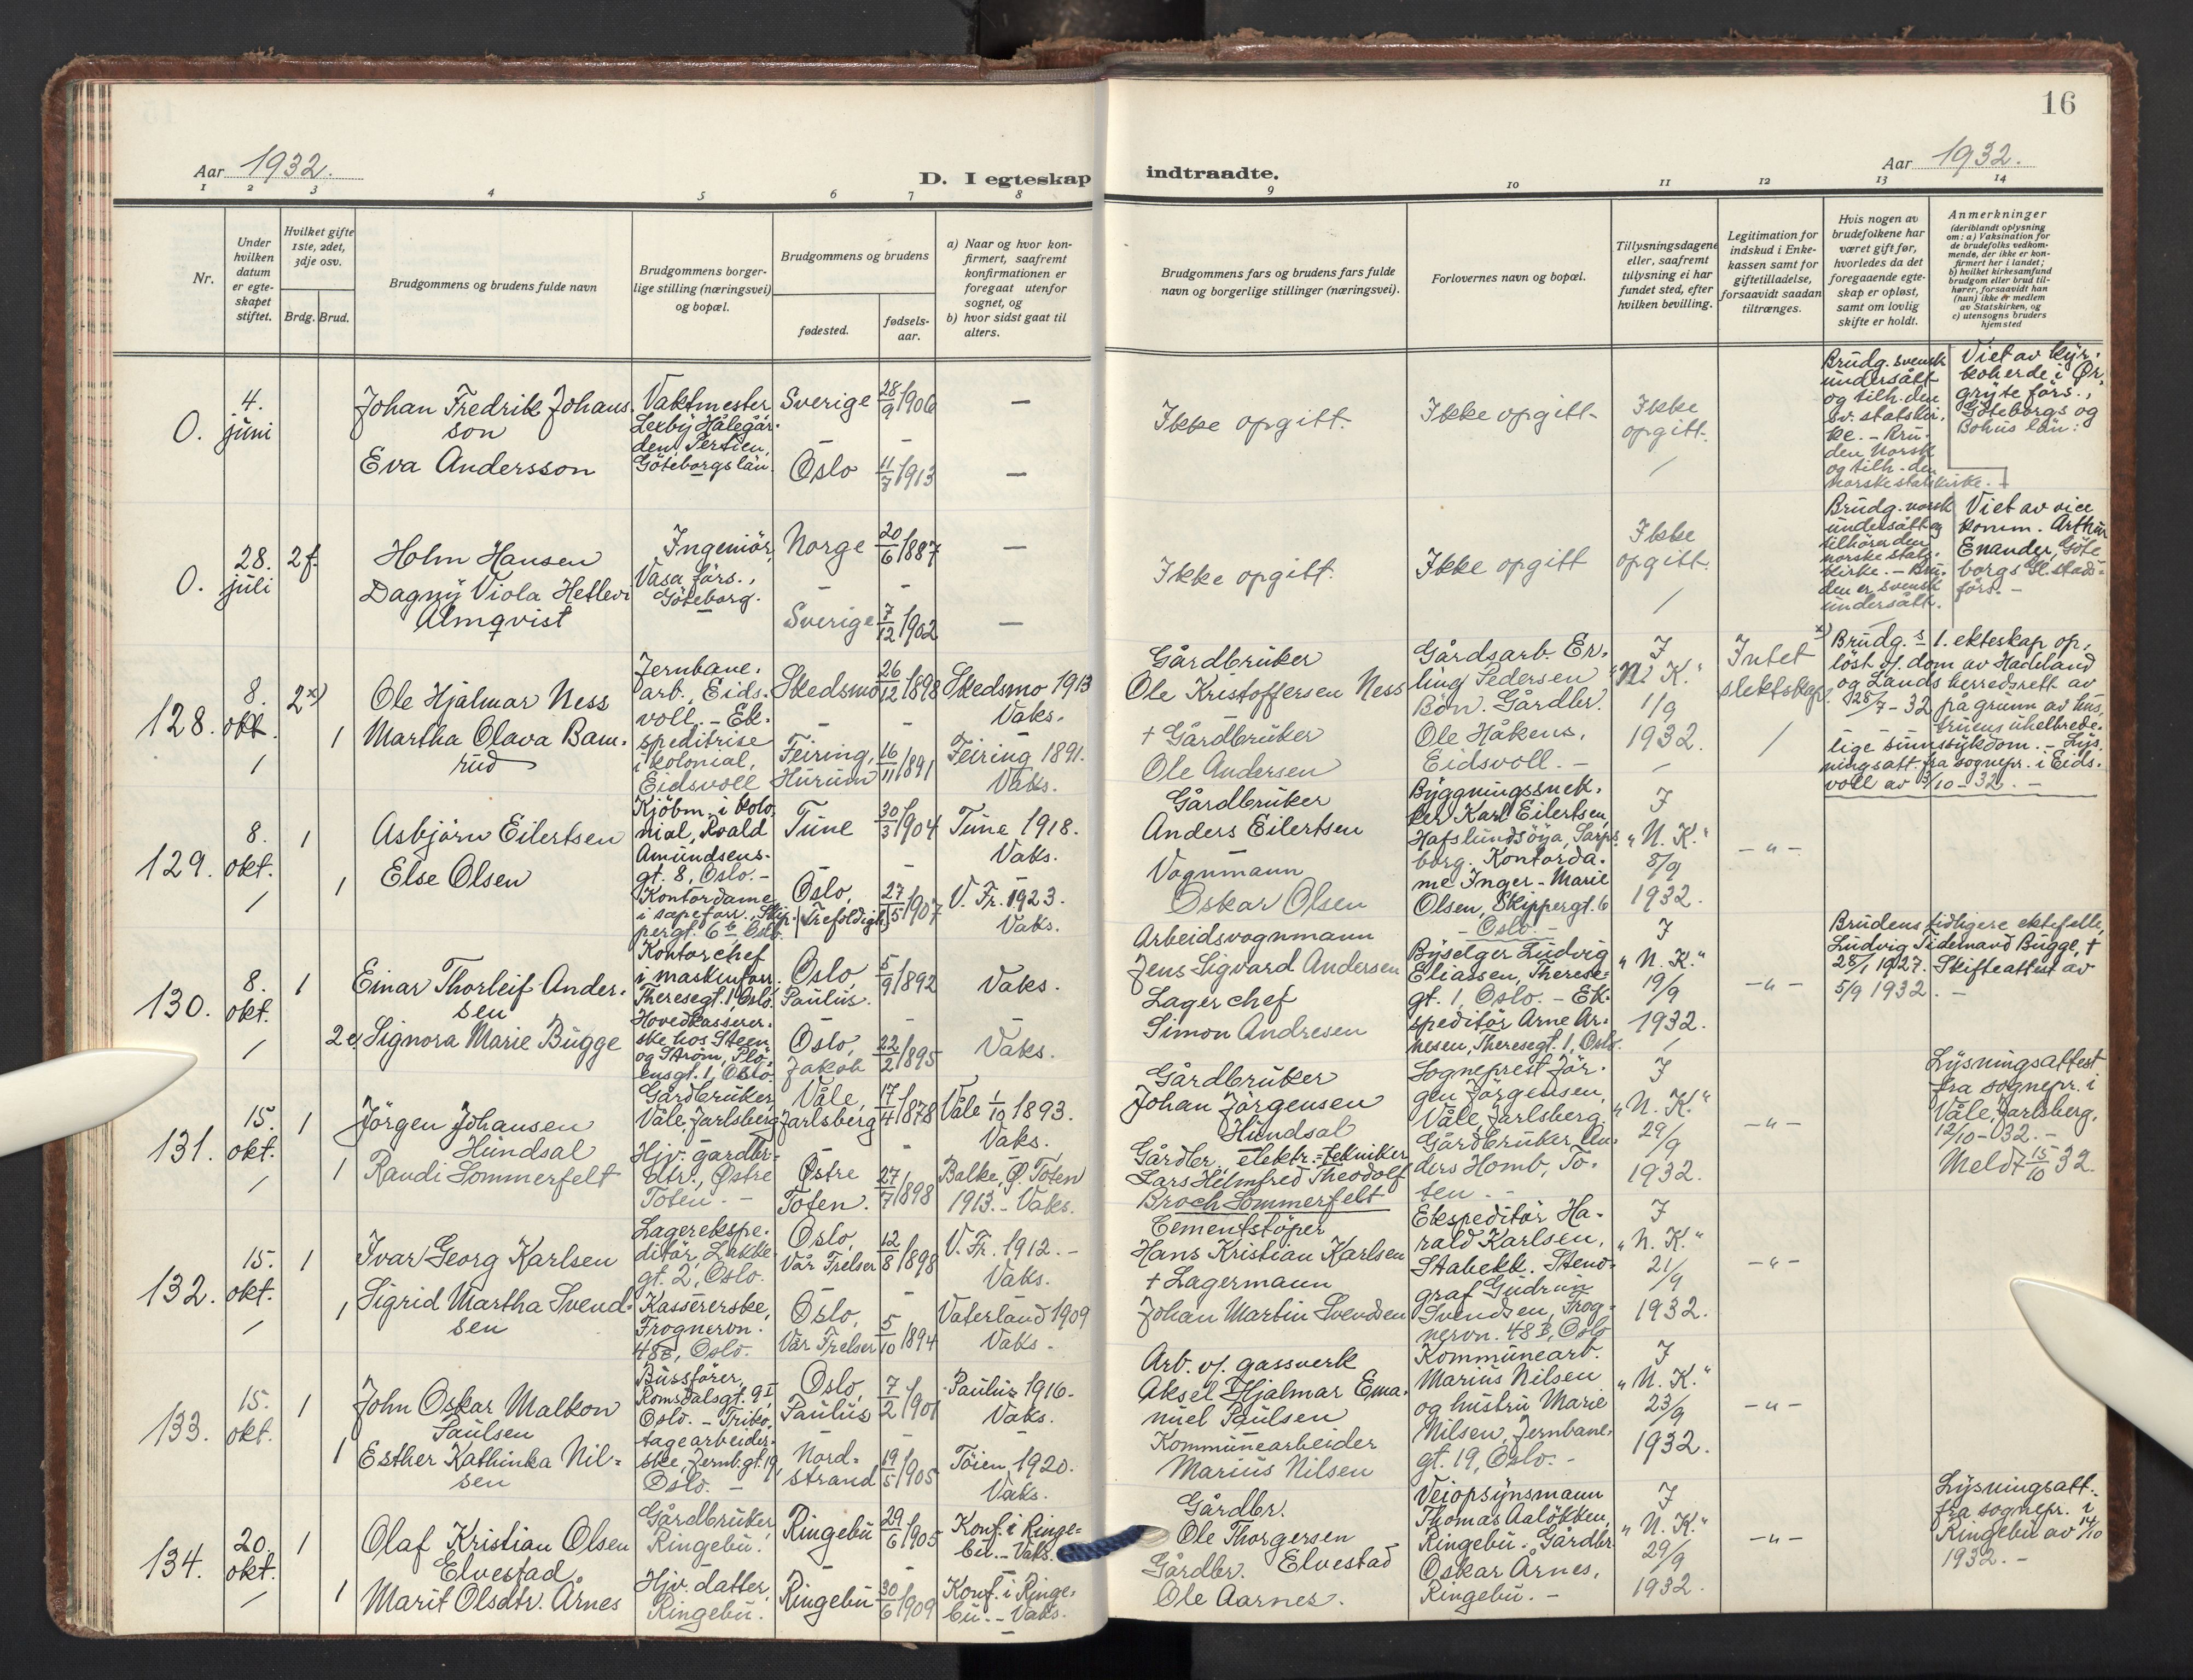 16
Aar 1932.
D. I egteskap
indtraadte.
Aar 1932.
1 2 3 4 5 6 7 8 9 10 11 12 13 14
Nr.
Under hvilken datum er egteskapet stiftet.
Hvilket gifte 1ste, 2det, 3dje osv.
Brdg. Brud.
Brudgommens og brudens fulde navn
Brudgommens borgerlige stilling (næringsvei) og bopæl.
Brudgommens og brudens
fødested.
fødselsaar.
a) Naar og hvor konfirmert, saafremt konfirmationen er foregaat utenfor sognet, og
b) hvor sidst gaat til alters.
Brudgommens fars og brudens fars fulde navn og borgerlige stillinger (næringsvei).
Forlovernes navn og bopæl.
Tillysningsdagene eller, saafremt tillysning ei har fundet sted, efter hvilken bevilling.
Legitimation for indskud i Enkekassen samt for giftetilladelse, forsaavidt saadan tiltrænges.
Hvis nogen av brudefolkene har været gift før, hvorledes da det foregaaende egteskap er opløst, samt om lovlig skifte er holdt.
Anmerkninger (deriblandt oplysning om: a) Vaksination for de brudefolks vedkommende, der ikke er konfirmert her i landet; b) hvilket kirkesamfund brudgom eller brud tilhører, forsaavidt han (hun) ikke er medlem av Statskirken, og c) utensogns bruders hjemsted
0.
4. juni
Johan Fredrik Johansson
Eva Andersson
Vaktmester
Lexby Hålegården, Partien,
Göteborgs län.
Sverige 28/9 1906 —
Oslo 11/7 1913 —
Ikke opgitt.
Ikke opgitt
Ikke opgitt.
Brudg. svensk
undersått
og tilh. den
sv. statskirke. - Bruden
Norsk
og tilh. den
norske statskirke.
Viet av kyrkoherde i Örgryte förs.,
Göteborgs og
Bohus län.
0.
28. juli
2 f.
Holm Hansen
Dagny Viola Hetlevi
Almqvist
Ingeniør,
Vasa förs.,
Göteborg.
Norge 20/6 1887 —
Sverige 7/12 1902 —
Ikke opgitt.
Ikke opgitt
Ikke opgitt.
Brudg. norsk
undersått og
tilhører den
norske statskirke. - Bruden er svensk
undersått.
Viet av vice
komm. Arthur
Enander, Göteborgs Gl. stads-
förs. -
128.
8. okt.
2 x) 1
Ole Hjalmar Ness
Martha Olava Bamrud
Jernbanearb., Eidsvoll. - Ekspeditrise
i kolonial,
Eidsvoll
Skedsmo 26/12 1898 Skedsmo 1913
Vaks.
Feiring, Hurum 16/11 1891 Feiring 1891.
Vaks.
Gårdbruker
Ole Kristoffersen Ness
+ Gårdbruker
Ole Andersen
Gårdsarb. Erling Pedersen
Bøn. Gårdbr.
Ole Håkens,
Eidsvoll. -
I
"N. K."
1/9
1932.
Intet
slektskap.
x) Brudg.s 1. ekteskap opløst v/. dom av Hadeland
og Lands herredsrett av
28/7-32 på grunn av hustruens uhelbredelige sinnssykdom. - Lysningsatt. fra sognepr. i Eidsvoll av 3/10-32. -
129.
8. okt.
1 1
Asbjørn Eilertsen
Else Olsen
Kjøbm. i kolonial, Roald
Amundsens-
gt. 8, Oslo. -
Kontordame
i sæpeforr., Skippergt. 6b Oslo.
Tune 30/3 1904 Tune 1918.
Vaks.
Oslo, Trefoldigh. 27/5 1907 V. Fr. 1923.
Vaks.
Gårdbruker
Anders Eilertsen
Vognmann
Oskar Olsen
Byggningssnekker Karl Eilertsen,
Hafslundsøya, Sarpsborg. Kontordame Inger-Marie
Olsen, Skippergt. 6
- Oslo. -
I
"N. K."
8/9
1932.
- " -
130.
8. okt.
1 2 e.
Einar Thorleif Andersen
Signora Marie Bugge
Kontorchef
i maskinforr.
Theresegt. 1, Oslo.
Hovedkassererske hos Steen
og Strøm,
1, Oslo.
Oslo, Paulus. 5/9 1892 Vaks.
Oslo, Jakob 22/2 1895 Vaks.
Arbeidsvognmann
Jens Sigvard Andersen
Lagerchef
Simon Andresen
Byselger Ludvig
Eliassen, Theresegt. 1, Oslo. - Ekspeditør Arne Arnesen, Theresegt. 1, Oslo.
I
"N. K."
19/9
1932.
- " -
Brudens tidligere ektefelle,
Ludvig Tidemand Bugge, †
28/1 1927. Skifteattest av
5/9 1932. -
131.
15. okt.
1 1
Jørgen Johansen
Hundsal
Randi Sommerfelt
Gårdbruker
Våle, Jarlsberg
Hjv. gårdbr-
dtr., Østre
Toten. -
Våle, Jarlsberg 17/4 1878 Våle 1/10 1893.
Vaks.
Østre Toten. 27/7 1898 Balke, Ø. Toten
1913. - Vaks.
Gårdbruker
Johan Jørgensen
Hundsal
Gårdbr., elektr.-tekniker
Lars Helmfred Theodolf
Broch Sommerfelt
Sogneprest Jørgen Jørgensen,
Våle, Jarlsberg
Gårdbruker Anders Homb, Toten. -
I
"N. K."
29/9
1932.
- " -
Lysningsattest
fra sognepr. i
Våle, Jarlsberg,
12/10-032. -
Meldt 15/10 32.
132.
15. okt.
1 1
Ivar Georg Karlsen
Sigrid Martha Svendsen
Lagerekspeditør, Lakkegt. 2, Oslo.
Kassererske,
Frognervn.
48B, Oslo.
Oslo, Vår Frelser 12/8 1898 V. Fr. 1912. -
Vaks.
Oslo, Vår Frelser 5/10 1894 Vaterland 1909
Vaks.
Cementstøper
Hans Kristian Karlsen
+ Lagermann
Johan Martin Svendsen
Ekspeditør Harald Karlsen,
Stabekk. Stenograf Gudrun
Svendsen, Frognervn. 48B, Oslo
I
"N. K."
21/9
1932.
- " -
133.
15. okt.
1 1
John Oskar Malkon
Paulsen
Esther Kathinka Nilsen
Bussfører,
Romsdalsgt. 9 I,
Oslo. - Trikotagearbeiderske, Jernb.gt. 19,
Oslo. -
Oslo, Paulus 7/2 1901 Paulus 1916.
Vaks.
Nordstrand 19/5 1905 Tøien 1920.
Vaks.
Arb. v/. gassverk
Aksel Hjalmar Emanuel Paulsen
Kommunearbeider
Marius Nilsen
Kommunearb.
Marius Nilsen
og hustru Marie
Nilsen, Jernbanegt. 19, Oslo. -
I
"N. K."
23/9
1932.
- " -
134.
20. okt.
1 1
Olaf Kristian Olsen
Elvestad
Marit Olsdtr. Årnes
Gårdbruker,
Ringebu.
Hjv. datter,
Ringebu.
Ringebu 29/6 1905 Konf. i Ringebu. - Vaks.
Ringebu 30/6 1909 Konf. i Ringebu. - Vaks.
Gårdbr.
Ole Thorgersen
Elvestad
Gårdbr.
Ole Aarnes.
Veiopsynsmann
Thomas Aaløkken,
Ringebu. Gårdbr.
Oskar Årnes,
Ringebu. -
I
"N. K."
29/9
1932.
- " -
Lysningsatt.
fra sognepr. i
Ringebu av 14/10
1932. -